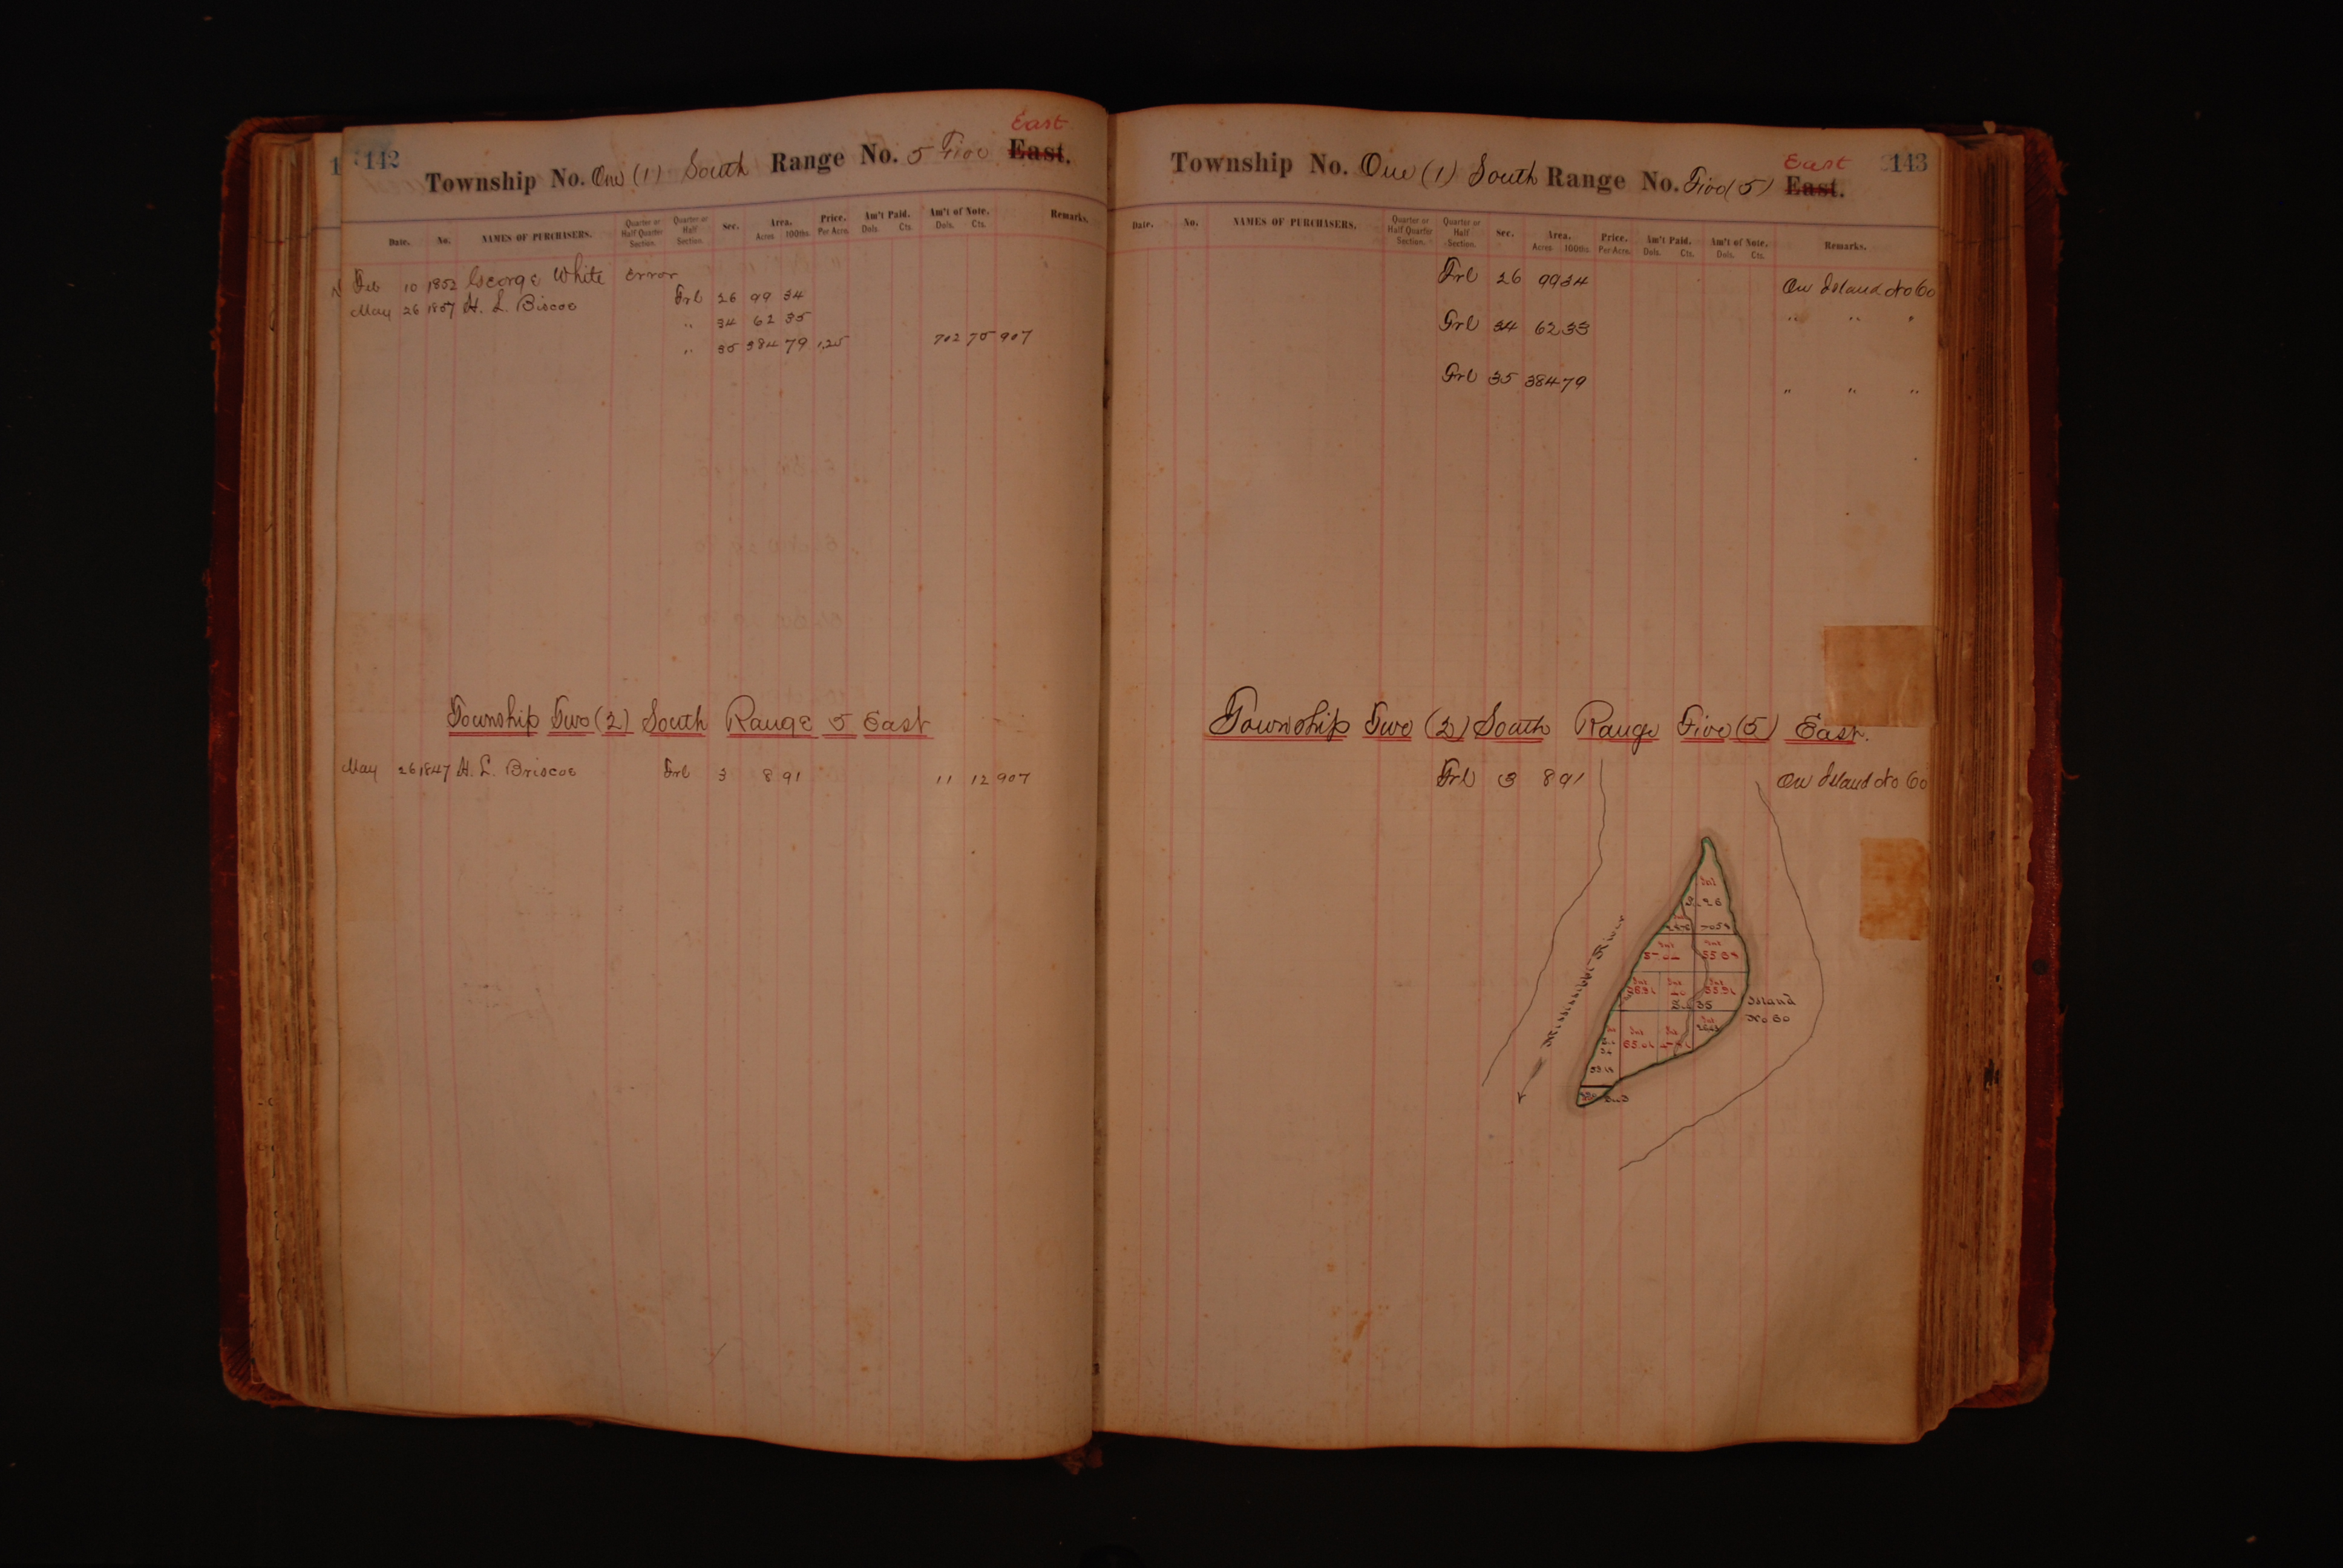 142
East
Township No. One (1) South Range No. 5 Five East.
Date. No. NAMES OF PURCHASERS. Quarter or Half Quarter Section. Quarter or Half Section. Sec. Area. Acres 100ths. Price. Per Acre. Am't Paid. Dols. Cts. Am't of Note. Dols. Cts. Remarks.
Feb 10 1852 George White Error
May 26 1857 H. L. Biscoe Frl 26 99 34
" 34 62 35
" 35 384 79 1,25 702 75 907
Township Two (2) South Range 5 East
May 26 1847 H. L. Briscoe Frl 3 8 91 11 12 907
143
East
Township No. One (1) South Range No. Five (5) East.
Date. No. NAMES OF PURCHASERS. Quarter or Half Quarter Section. Quarter or Half Section. Sec. Area. Acres 100ths. Price. Per Acre. Am't Paid. Dols. Cts. Am't of Note. Dols. Cts. Remarks.
Frl 26 99 34 On Island No 60
Frl 34 62 33 " " "
Frl 35 384 79 " " "
Township Two (2) South Range Five (5) East.
Frl 3 8 91 On Island No 60
26
35
Mississippi River
Island
No 60